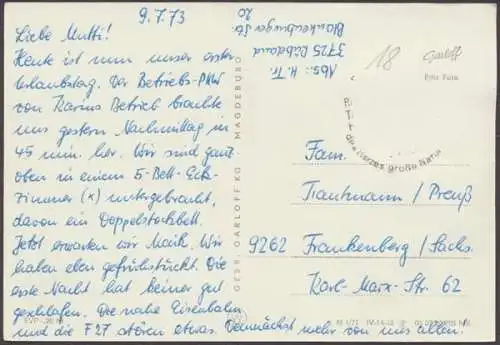 9.7.73
Liebe Mutti!
Heute ist nun unser erster
Urlaubstag. Der Betriebs-PKW
von Karins Betrieb brachte
uns gestern Nachmittag in
45 min. her. Wir sind ganz
oben in einem 5-Bett-Eck-
zimmer (x) untergebracht,
davon ein Doppelstockbett.
Jetzt erwarten wir Maik. Wir
haben eben gefrühstückt. Die
erste Nacht hat keiner gut
geschlafen. Die nahe Eisenbahn
und die F27 stören etwas. Demnächst mehr von uns allen!
Abs.: H. Tr.
3725 Rübeland
Blankenburger Str.
20
GEBR. GARLOFF KG. MAGDEBURG
18
Garloff
Echt Foto
des Herzes große Natur
Fam.
Trautmann / Preuß
9262 Frankenberg / Sachs.
Karl-Marx-Str. 62
EVP